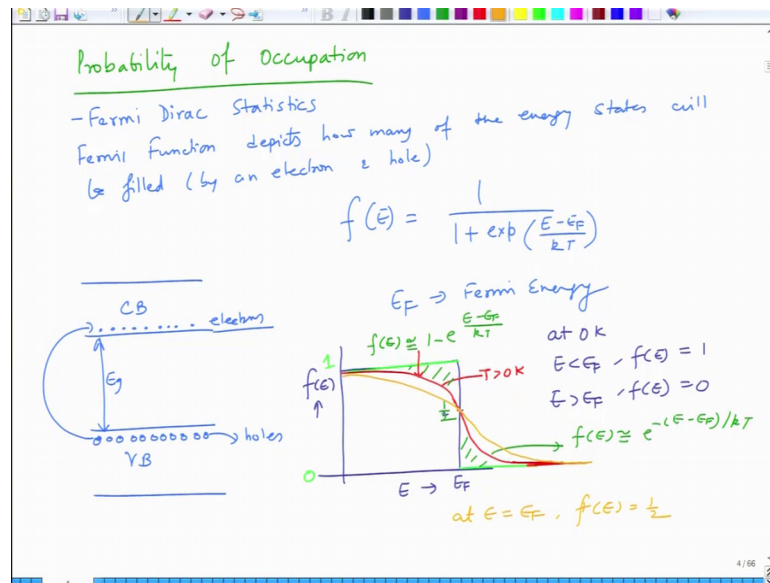 Probability of Occupation
- Fermi Dirac Statistics
Fermi Function depicts how many of the energy states will
be filled (by an electron & hole)
f(E) = 1 / (1 + exp((E-EF)/kT))
EF → Fermi Energy
CB
electrons
Eg
holes
VB
f(E) ≅ 1 - e^((E-EF)/kT)
1
f(E)
↑
T>0K
1/2
0
E → EF
at 0K
E<EF, f(E) = 1
E>EF, f(E) = 0
f(E) ≅ e^(-(E-EF)/kT)
at E = EF, f(E) = 1/2
4 / 66